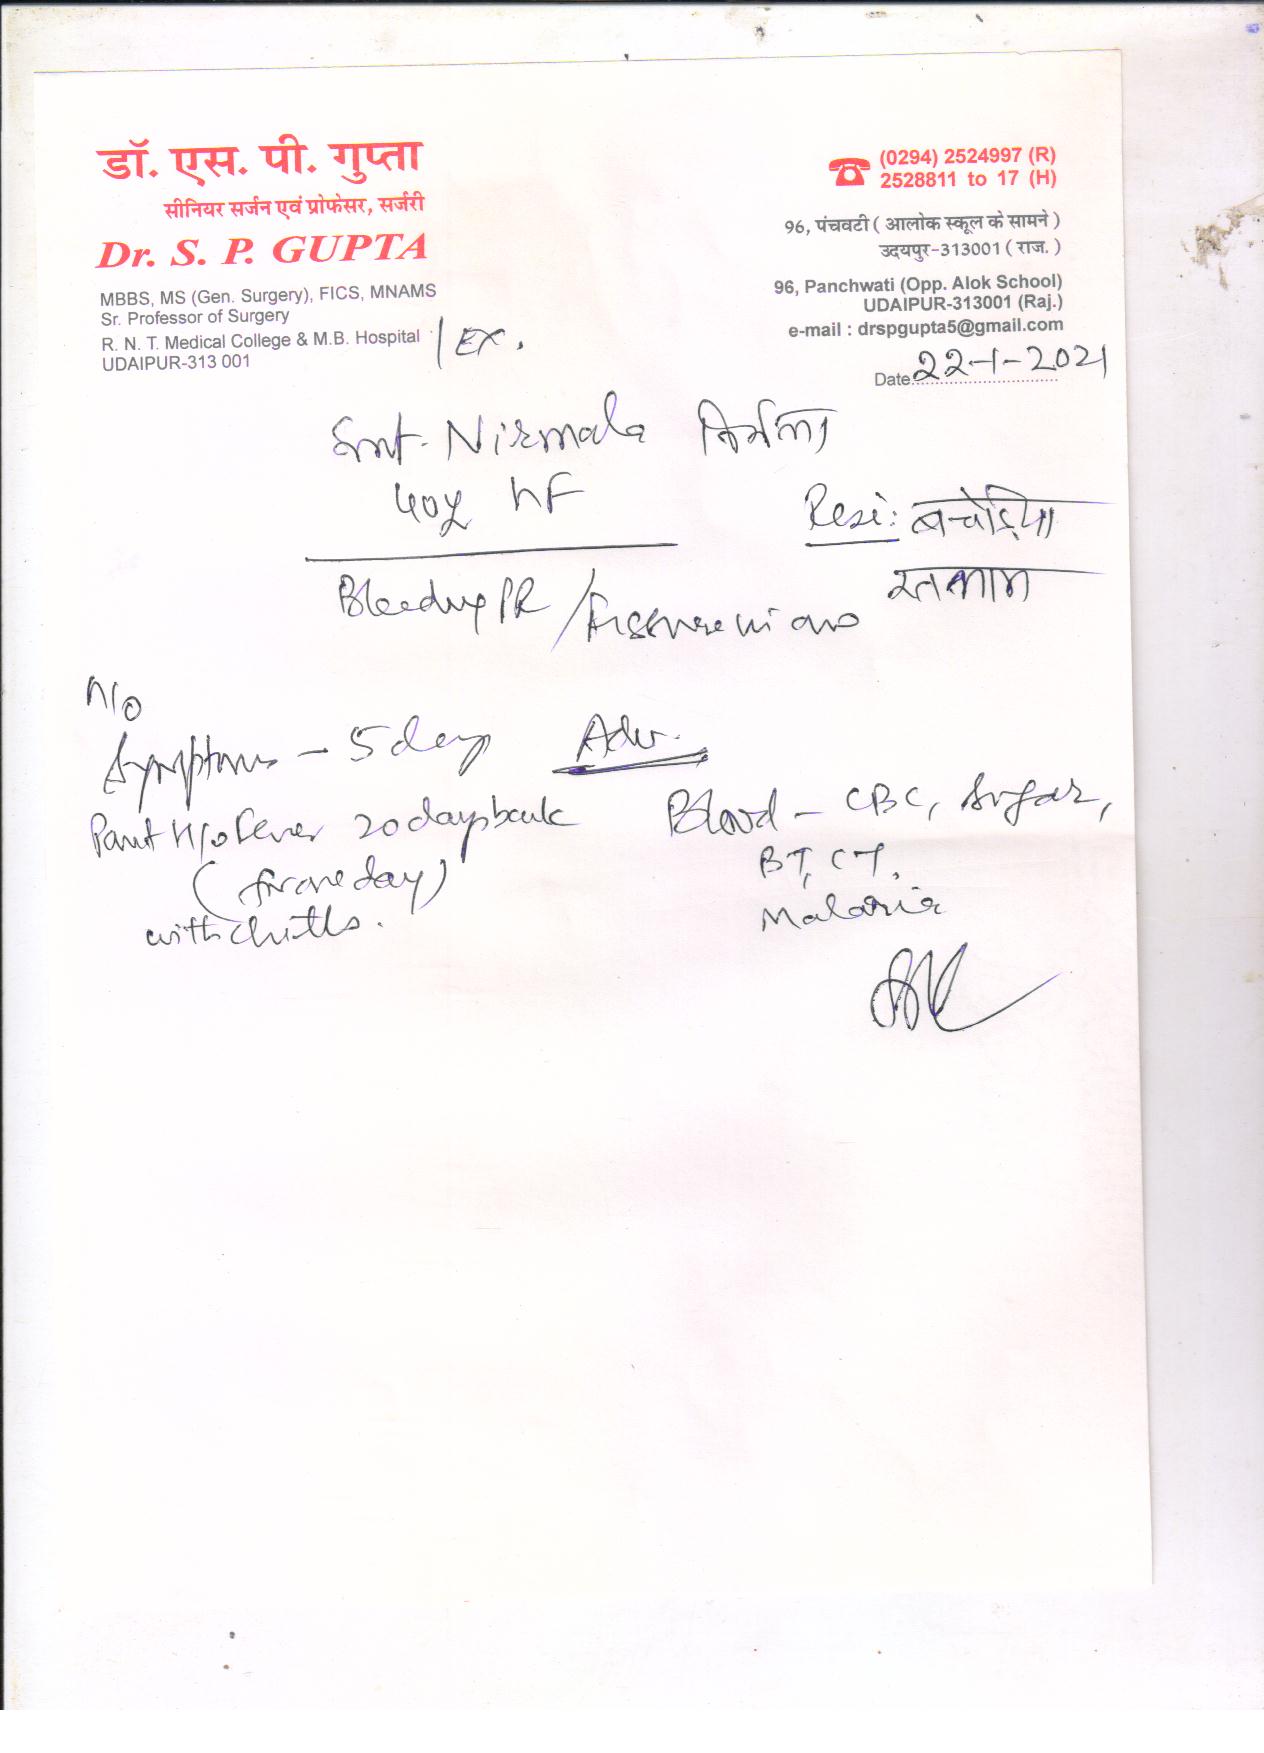 डॉ. एस. पी. गुप्ता
सीनियर सर्जन एवं प्रोफेसर, सर्जरी
Dr. S. P. GUPTA
MBBS, MS (Gen. Surgery), FICS, MNAMS
Sr. Professor of Surgery
R. N. T. Medical College & M.B. Hospital / Ex.
UDAIPUR-313 001
(0294) 2524997 (R)
2528811 to 17 (H)
96, पंचवटी ( आलोक स्कूल के सामने )
उदयपुर-313001 ( राज. )
96, Panchwati (Opp. Alok School)
UDAIPUR-313001 (Raj.)
e-mail : drspgupta5@gmail.com
Date 22-1-2021
Smt. Nirmala निर्मला
40y HF
Resi: बचोड़िया
रतलाम
Bleeding PR / Fissure in ano
H/o
Symptoms - 5 day
Past H/o Fever 20 days back
(for one day)
with chills.
Adv.
Blood - CBC, Sugar,
BT, CT,
Malaria